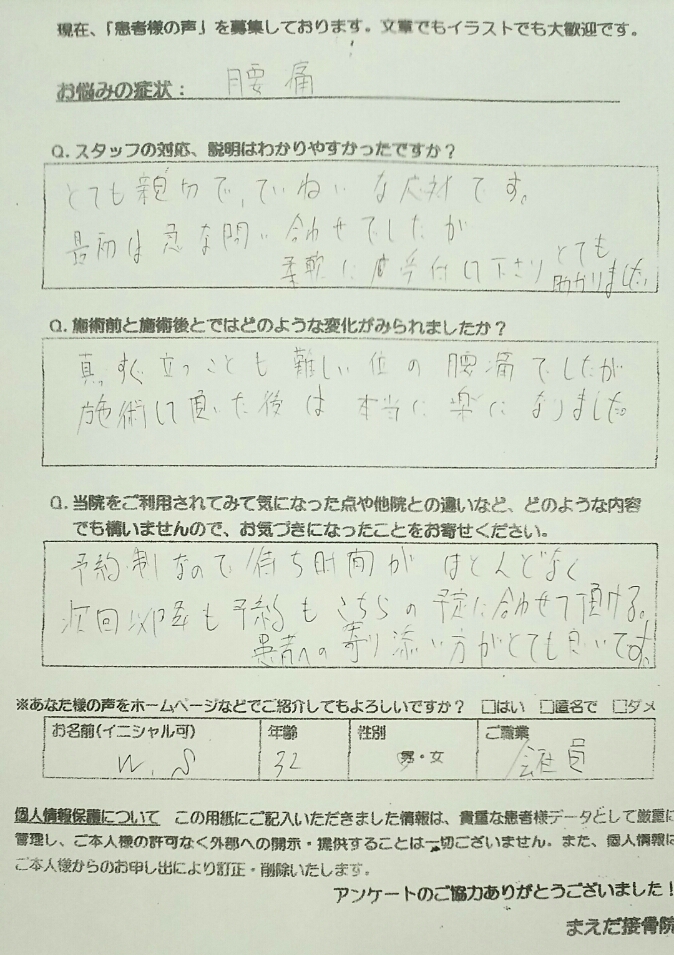 現在、「患者様の声」を募集しております。文章でもイラストでも大歓迎です。
お悩みの症状： 腰痛
Q. スタッフの対応、説明はわかりやすかったですか？
とても親切で、ていねいな応対です。
最初は急な問い合わせでしたが
柔軟に受付して下さり とても
助かりました。
Q. 施術前と施術後とではどのような変化がみられましたか？
真っすぐ立つことも難しい位の腰痛でしたが
施術して頂いた後は本当に楽になりました。
Q. 当院をご利用されてみて気になった点や他院との違いなど、どのような内容
でも構いませんので、お気づきになったことをお寄せください。
予約制なので待ち時間がほとんどなく
次回以降も予約もこちらの予定に合わせて頂ける。
患者への寄り添い方がとても良いです。
※あなた様の声をホームページなどでご紹介してもよろしいですか？ □はい □匿名で □ダメ
お名前(イニシャル可) 年齢 性別 ご職業
W.S 32 男・女 会社員
個人情報保護について この用紙にご記入いただきました情報は、貴重な患者様データとして厳重に
管理し、ご本人様の許可なく外部への開示・提供することは一切ございません。また、個人情報は
ご本人様からのお申し出により訂正・削除いたします。
アンケートのご協力ありがとうございました！
まえだ接骨院